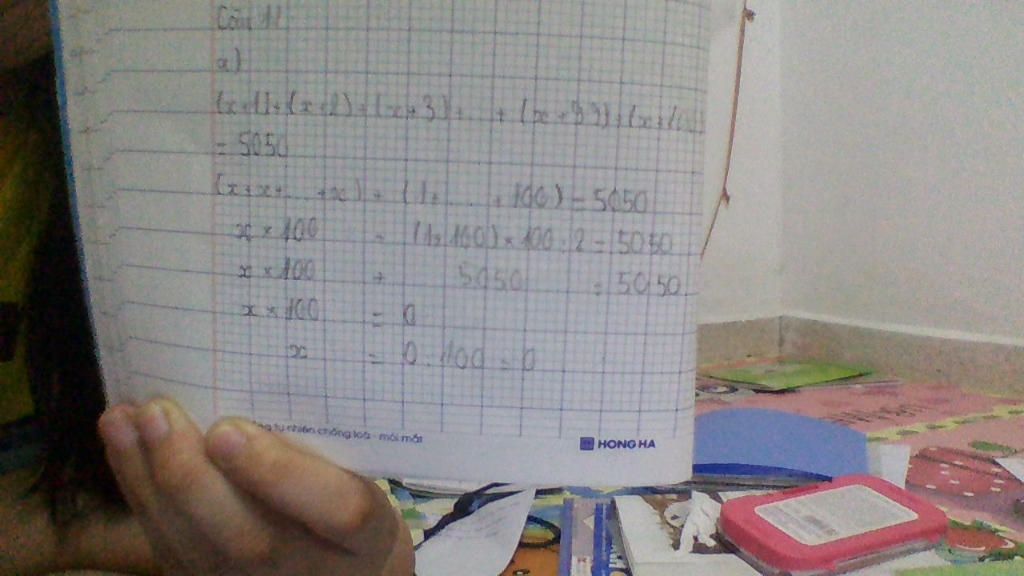 Câu 1:
a)
(x+1)+(x+2)+(x+3)+...+(x+99)+(x+100)
= 5050
(x+x+...+x) + (1+...+100) = 5050
x × 100 + (1+100)×100:2 = 5050
x × 100 + 5050 = 5050
x × 100 = 0
x = 0:100 = 0
tự nhiên chống loá - mỏi mắt
HONG HA